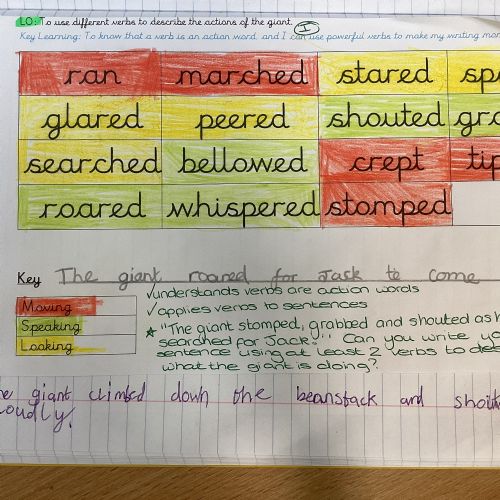 LO: To use different verbs to describe the actions of the giant.
Key Learning: To know that a verb is an action word, and I can use powerful verbs to make my writing
ran marched stared
glared peered shouted
searched bellowed crept
roared whispered stomped
Key The giant roared for Jack to come
Moving
Speaking
Looking
✓understands verbs are action words
✓applies verbs to sentences
* "The giant stomped, grabbed and shouted as
searched for Jack." Can you write
sentence using at least 2 verbs to
what the giant is doing?
giant climbed down the beanstack and
loudly.